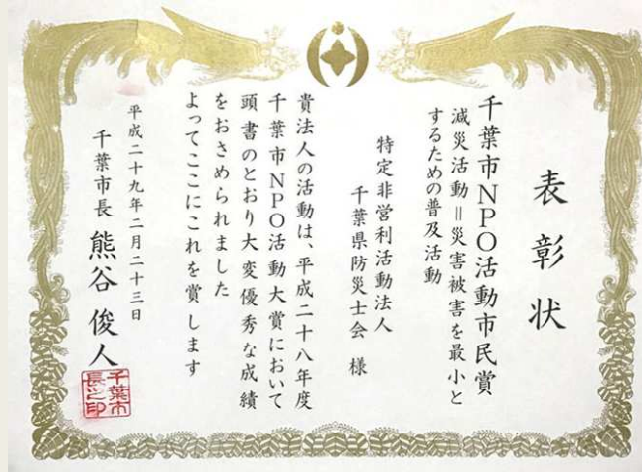 表彰状
千葉市NPO活動市民賞
減災活動＝災害被害を最小と
するための普及活動
特定非営利活動法人
千葉県防災士会 様
貴法人の活動は、平成二十八年度
千葉市NPO活動大賞において
頭書のとおり大変優秀な成績
をおさめられました
よってここにこれを賞します
平成二十九年二月二十三日
千葉市長 熊谷俊人
千葉市
長之印